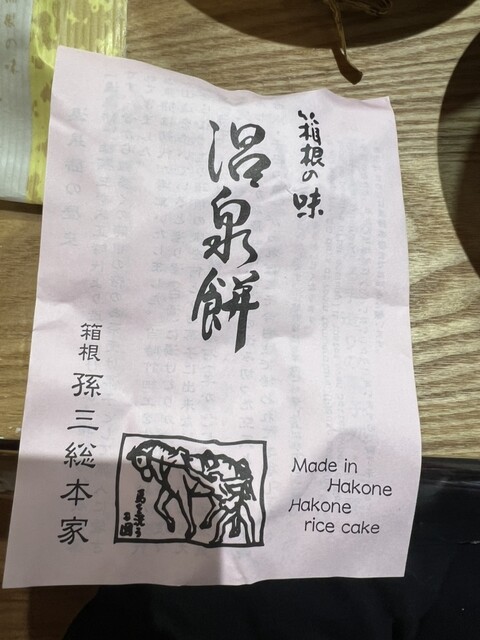 箱根の味
温泉餅
箱根 孫三総本家
馬を洗うの図
Made in
Hakone
Hakone
rice cake